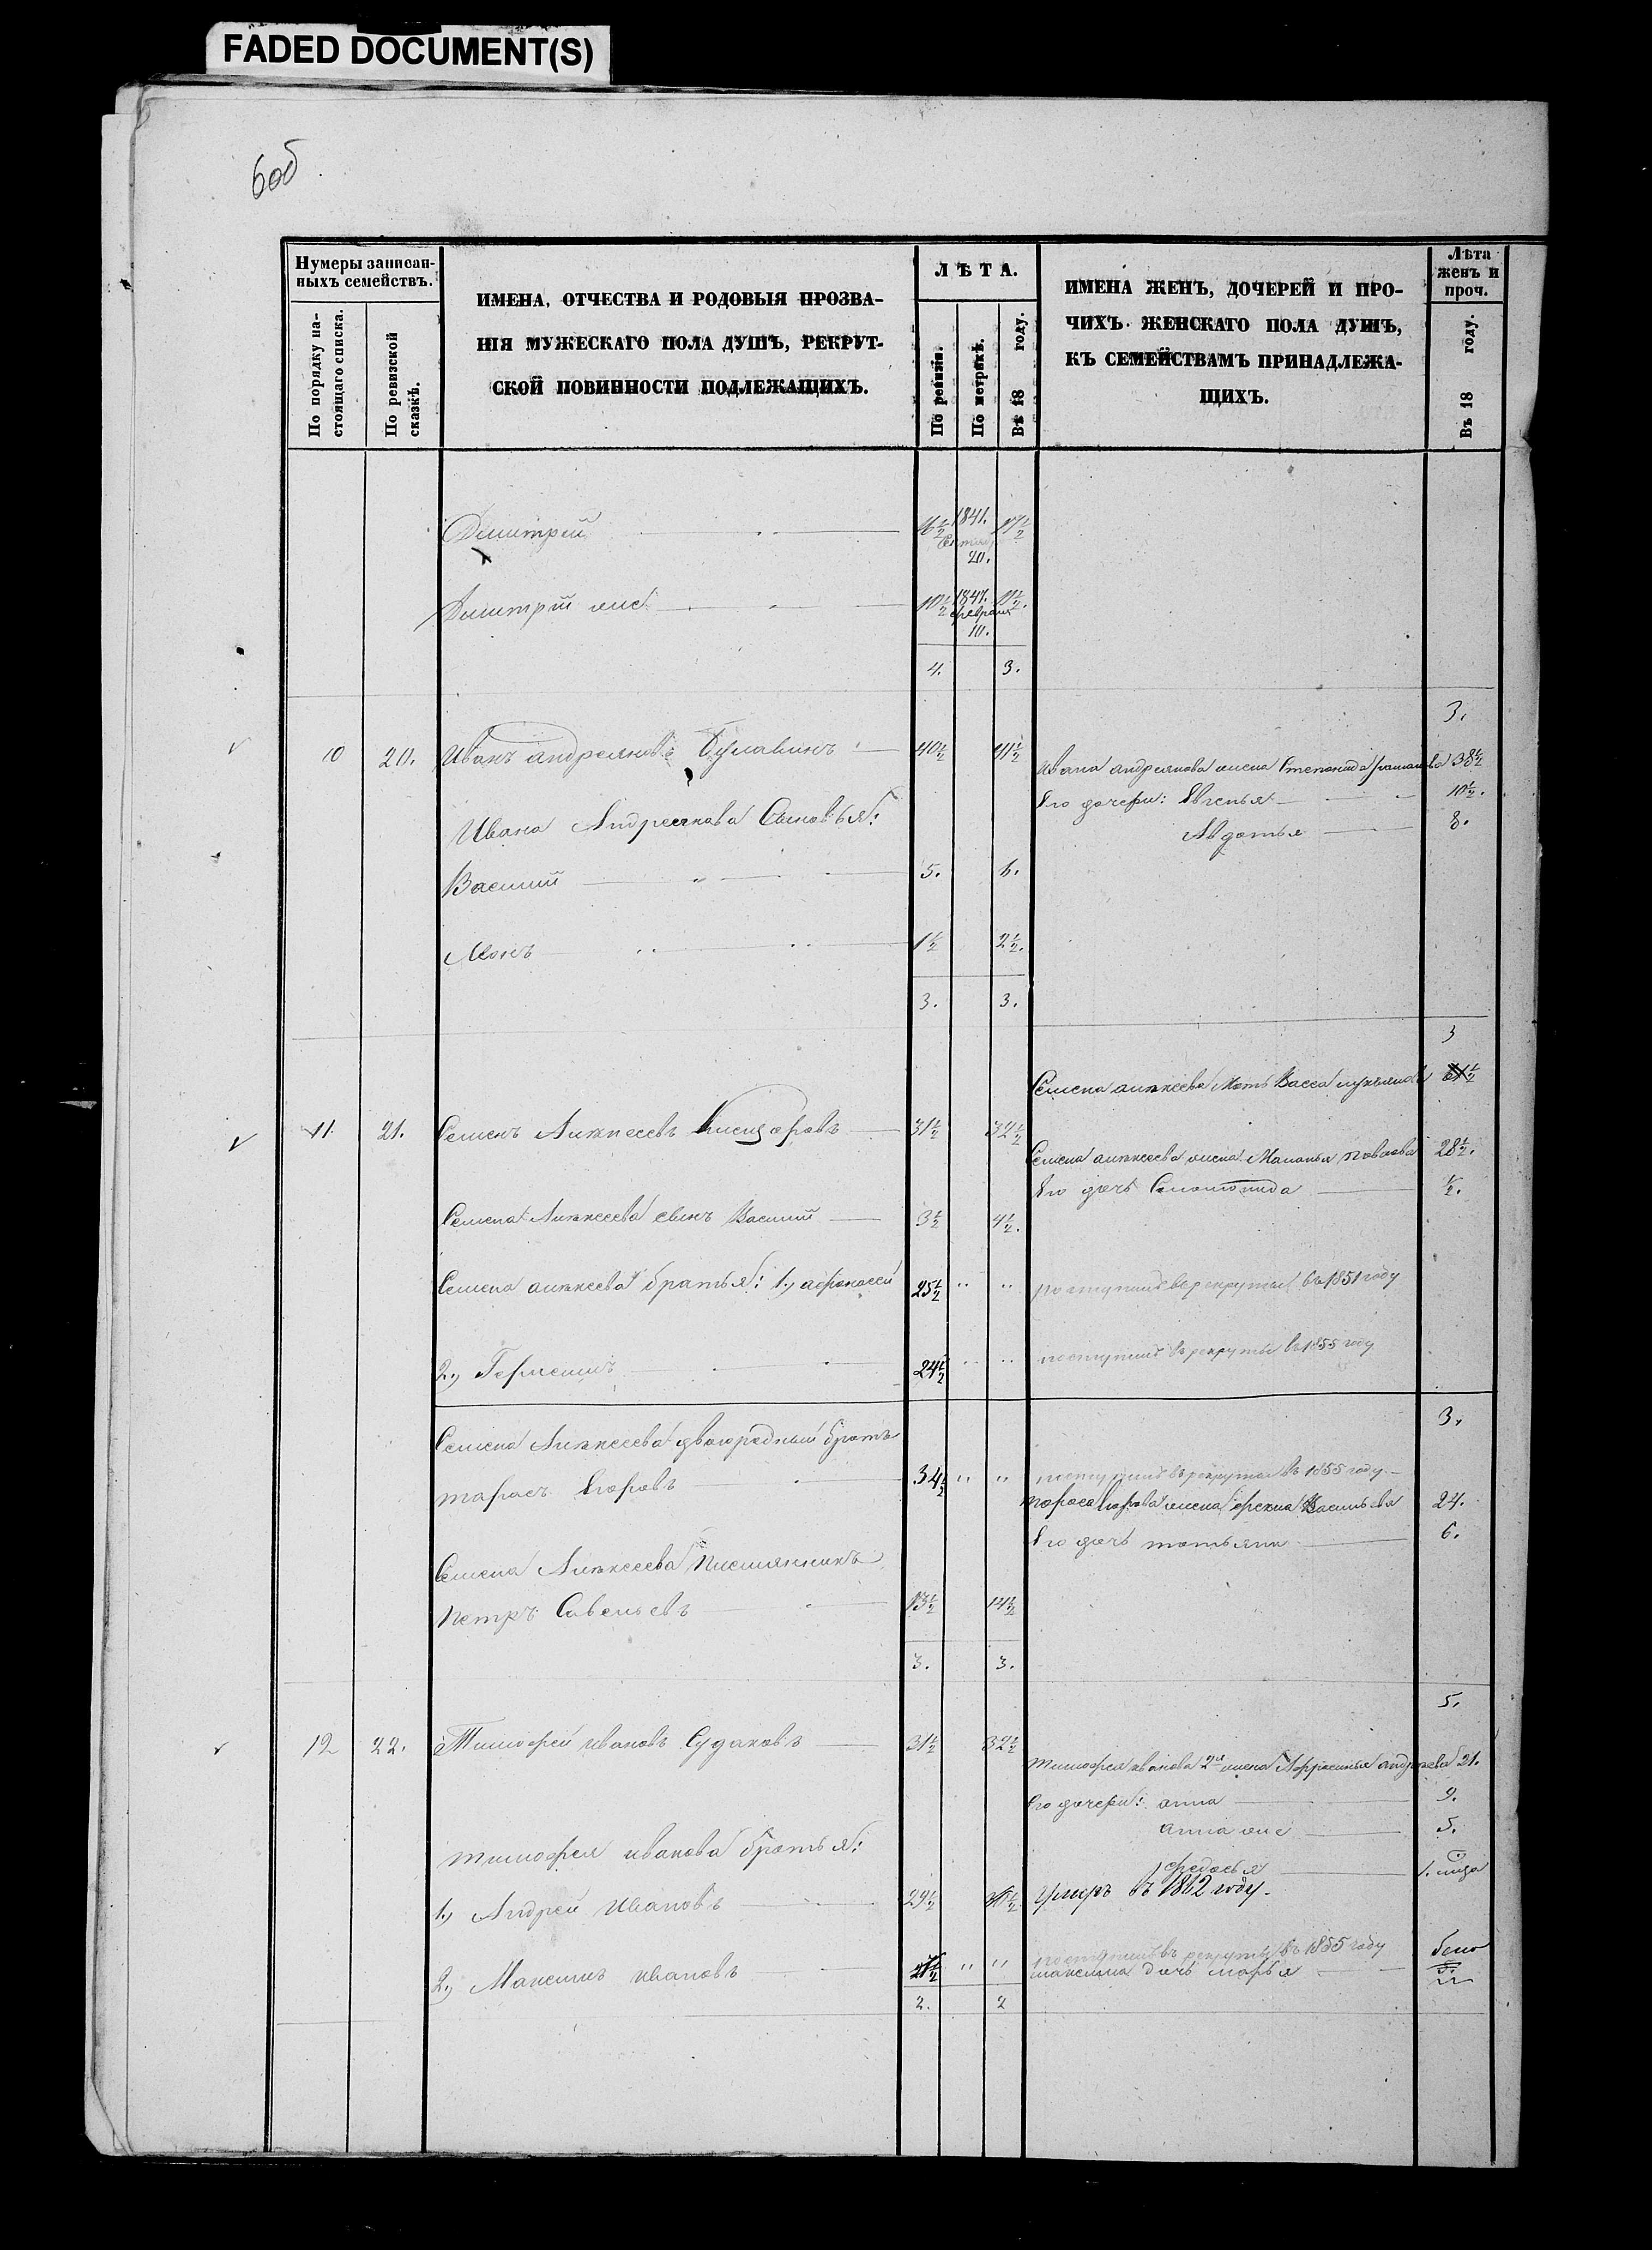 FADED DOCUMENT(S)
6 об
Нумеры записан-
ныхъ семействъ.
По порядку на-
стоящаго списка.
По ревизской
сказкѣ.
ИМЕНА, ОТЧЕСТВА И РОДОВЫЯ ПРОЗВА-
НІЯ МУЖЕСКАГО ПОЛА ДУШЪ, РЕКРУТ-
СКОЙ ПОВИННОСТИ ПОДЛЕЖАЩИХЪ.
ЛѢТА.
По ревизіи.
По метрикѣ.
Въ 18 году.
ИМЕНА ЖЕНЪ, ДОЧЕРЕЙ И ПРО-
ЧИХЪ ЖЕНСКАГО ПОЛА ДУШЪ,
КЪ СЕМЕЙСТВАМЪ ПРИНАДЛЕЖА-
ЩИХЪ.
Лѣта
женъ и
проч.
Въ 18 году.
Дмитрей 16½ 1841. 17½
20.
Дмитрій 10½ 1847. 11½.
февраля
10.
4. 3.
3.
10 20. Иванъ андреяновъ Булавинъ 40½ 41½
Ивана андреянова жена Степанида 38½
Его дочери: Евгенья 10½.
Ивана Андреянова Сыновья:
Авдотья 8.
Василій 5. 6.
1½ 2½.
3. 3.
3
Семена алексеева Мать Васса 61½
11. 21. Семенъ Алексеевъ 31½ 32½
Семена алексеева жена Маланья павлова 28½.
Его дочь ½.
Семена Алексеева сынъ Василій 3½ 4½.
Семена алексеева братья: 1., афонасей 25½ " " поступилъ в рекруты въ 1851 году
2., 24½ " " поступилъ въ рекруты въ 1855 году
3.
Семена Алексеева двоюродный братъ
тарасъ Егоровъ 34½ " " поступилъ въ рекруты въ 1855 году
тараса Егорова жена Васильева 27.
Его дочь татьяна 6.
Семена Алексеева племянникъ
петръ Савельевъ 13½ 14½
3. 3.
5.
12 22. Тимофей ивановъ Судаковъ 31½ 32½
тимофея иванова 2я жена андреева 21.
Его дочери: анна 9.
анна 5.
тимофея иванова братья:
федосья 1.
1., Андрей Ивановъ 29½ Умеръ въ 1862 году.
2., Максимъ ивановъ 21½ " " поступилъ въ рекруты въ 1855 году
максима дочь марья
2. 2